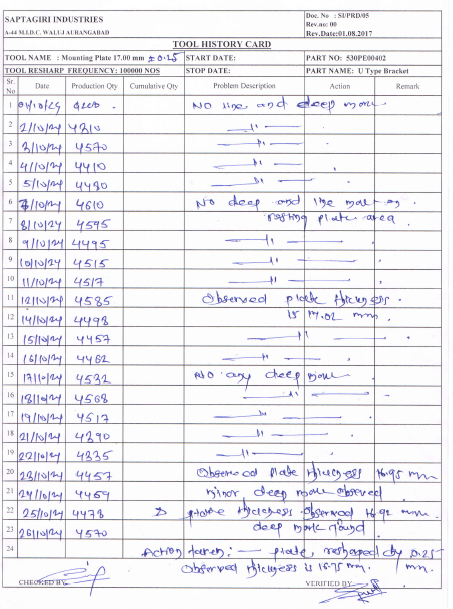 SAPTAGIRI INDUSTRIES
A-44 M.I.D.C. WALUJ AURANGABAD
Doc. No : SI/PRD/05
Rev.no: 00
Rev.Date:01.08.2017
TOOL HISTORY CARD
TOOL NAME : Mounting Plate 17.00 mm ± 0.25 START DATE: PART NO: 530PE00402
TOOL RESHARP FREQUENCY: 100000 NOS STOP DATE: PART NAME: U Type Bracket
Sr. No Date Production Qty Cumulative Qty Problem Description Action Remark
1 01/10/24 No line and deep mark
2 2/10/24 4310 —"—
3 3/10/24 4570 —"—
4 4/10/24 4410 —"—
5 5/10/24 4480 —"—
6 7/10/24 4610 No deep and line mark on
7 8/10/24 4595 resting plate area.
8 9/10/24 4495 —"—
9 10/10/24 4515 —"—
10 11/10/24 4517 —"—
11 12/10/24 4585 Observed plate thickness.
12 14/10/24 4498 is 17.02 mm.
13 15/10/24 4457 —"—
14 16/10/24 4462 —"—
15 17/10/24 4532 No any deep mark
16 18/10/24 4568 —"—
17 19/10/24 4517 —"—
18 21/10/24 4390 —"—
19 22/10/24 4335 —"—
20 23/10/24 4457 Observed plate thickness 16.95 mm
21 24/10/24 4469 minor deep mark observed
22 25/10/24 4478 plate thickness observed 16.92 mm.
23 26/10/24 4570 deep mark found
24 Action taken: — plate, resharped by 0.25 mm.
Observed thickness is 16.75 mm.
CHECKED BY
VERIFIED BY